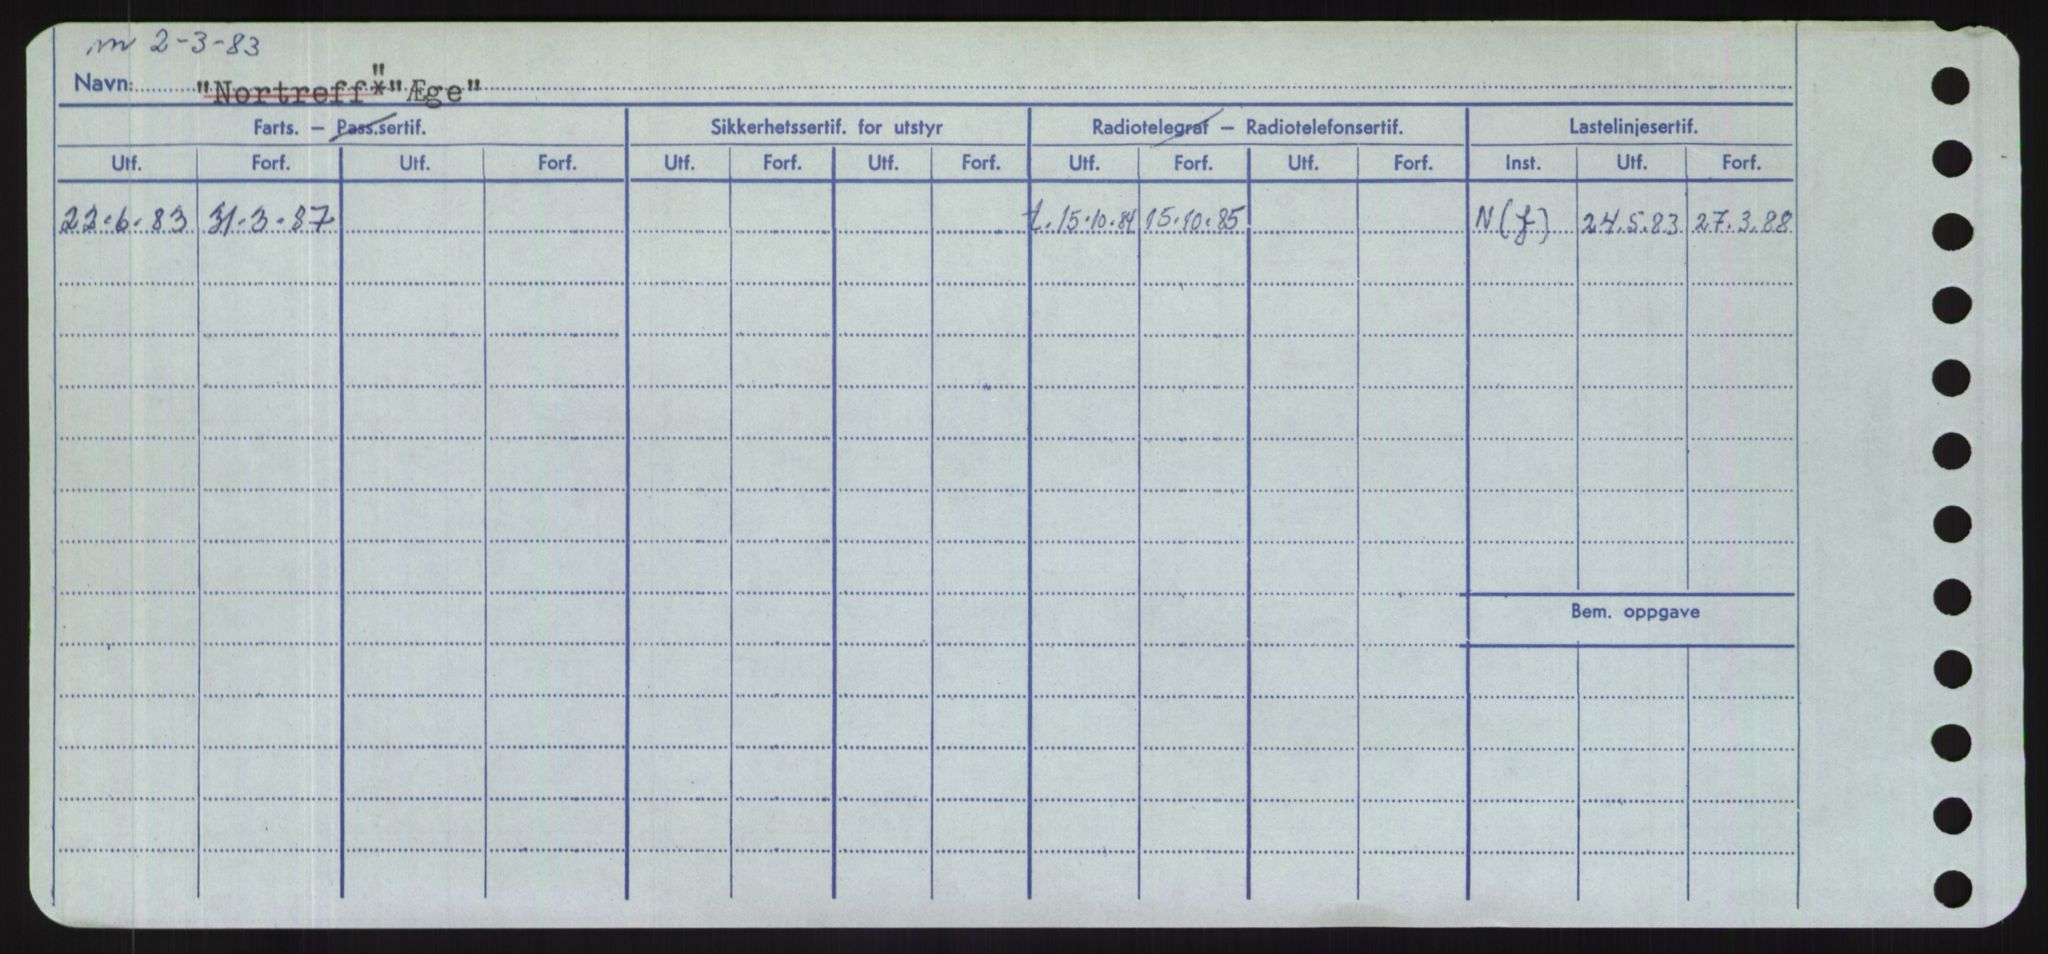 nr 2-3-83
Navn: "Nortreff" "Æge"
Farts. – Pass.sertif. Sikkerhetssertif. for utstyr Radiotelegraf – Radiotelefonsertif. Lastelinjesertif.
Utf. Forf. Utf. Forf. Utf. Forf. Utf. Forf. Utf. Forf. Utf. Forf. Inst. Utf. Forf.
22.6.83 31.3.87 t.15.10.84 15.10.85 N(f) 24.5.83 27.3.88
Bem. oppgave